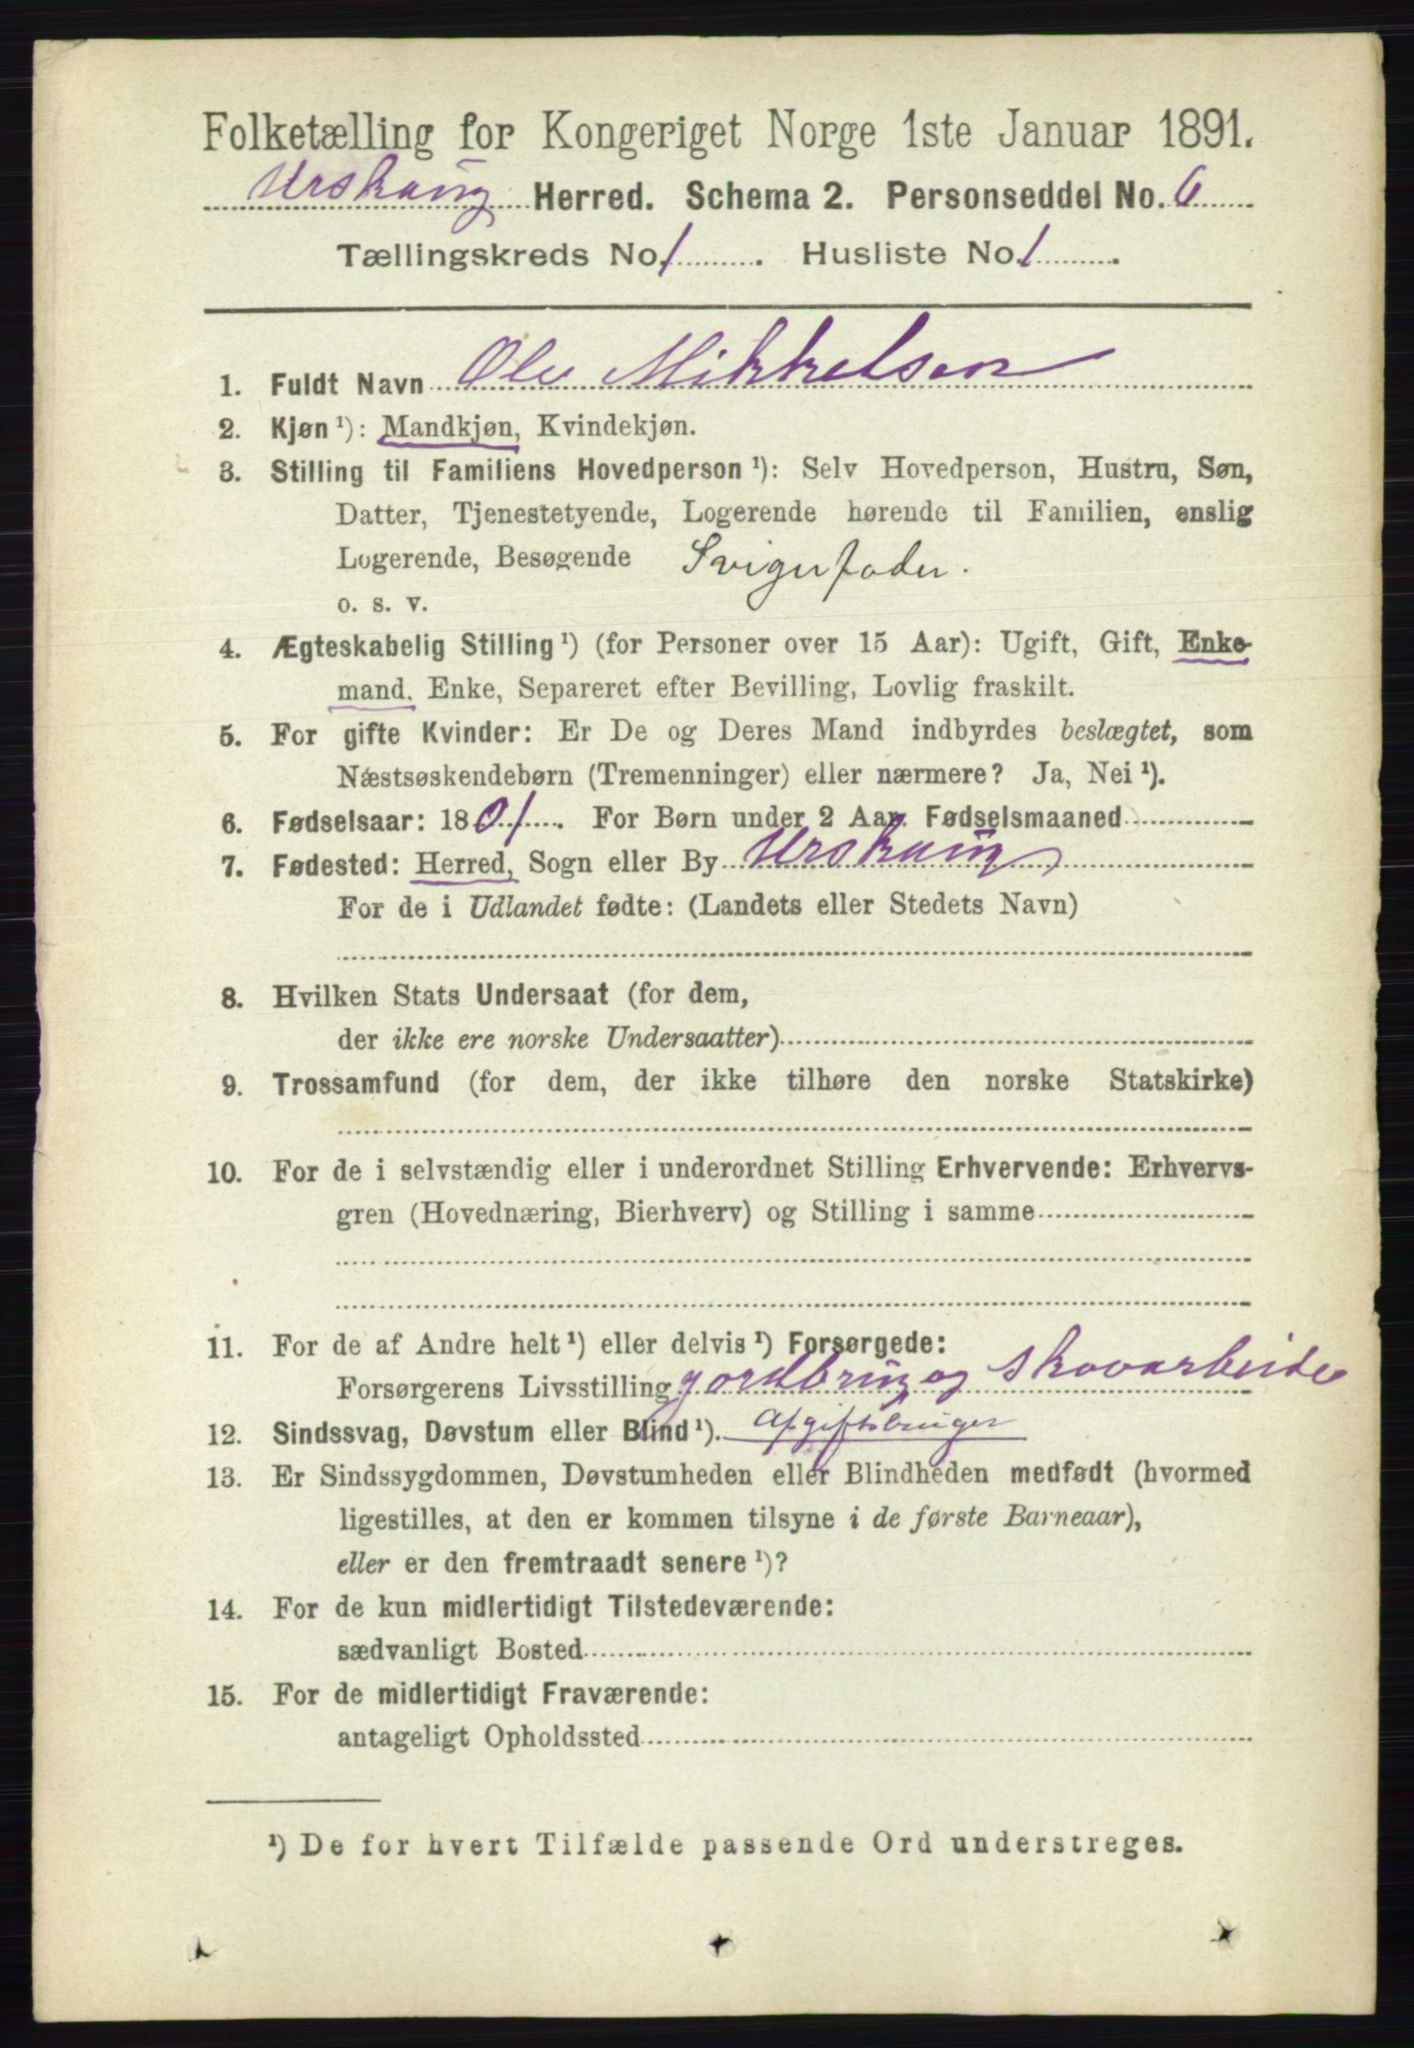 Folketælling for Kongeriget Norge 1ste Januar 1891.
Urskoug Herred. Schema 2. Personseddel No. 6
Tællingskreds No. 1. Husliste No. 1.
1. Fuldt Navn Ole Mikkelsen
2. Kjøn ¹): Mandkjøn, Kvindekjøn.
3. Stilling til Familiens Hovedperson ¹): Selv Hovedperson, Hustru, Søn,
Datter, Tjenestetyende, Logerende hørende til Familien, enslig
Logerende, Besøgende Svigerfader.
o. s. v.
4. Ægteskabelig Stilling ¹) (for Personer over 15 Aar): Ugift, Gift, Enke-
mand, Enke, Separeret efter Bevilling, Lovlig fraskilt.
5. For gifte Kvinder: Er De og Deres Mand indbyrdes beslægtet, som
Næstsøskendebørn (Tremenninger) eller nærmere? Ja, Nei ¹).
6. Fødselsaar: 1801. For Børn under 2 Aar, Fødselsmaaned
7. Fødested: Herred, Sogn eller By Urskoug
For de i Udlandet fødte: (Landets eller Stedets Navn)
8. Hvilken Stats Undersaat (for dem,
der ikke ere norske Undersaatter)
9. Trossamfund (for dem, der ikke tilhøre den norske Statskirke)
10. For de i selvstændig eller i underordnet Stilling Erhvervende: Erhvervs-
gren (Hovednæring, Bierhverv) og Stilling i samme
11. For de af Andre helt ¹) eller delvis ¹) Forsørgede:
Forsørgerens Livsstilling jordbrug og skovarbeide
12. Sindssvag, Døvstum eller Blind ¹). Afgiftsbruger
13. Er Sindssygdommen, Døvstumheden eller Blindheden medfødt (hvormed
ligestilles, at den er kommen tilsyne i de første Barneaar),
eller er den fremtraadt senere ¹)?
14. For de kun midlertidigt Tilstedeværende:
sædvanligt Bosted
15. For de midlertidigt Fraværende:
antageligt Opholdssted
¹) De for hvert Tilfælde passende Ord understreges.